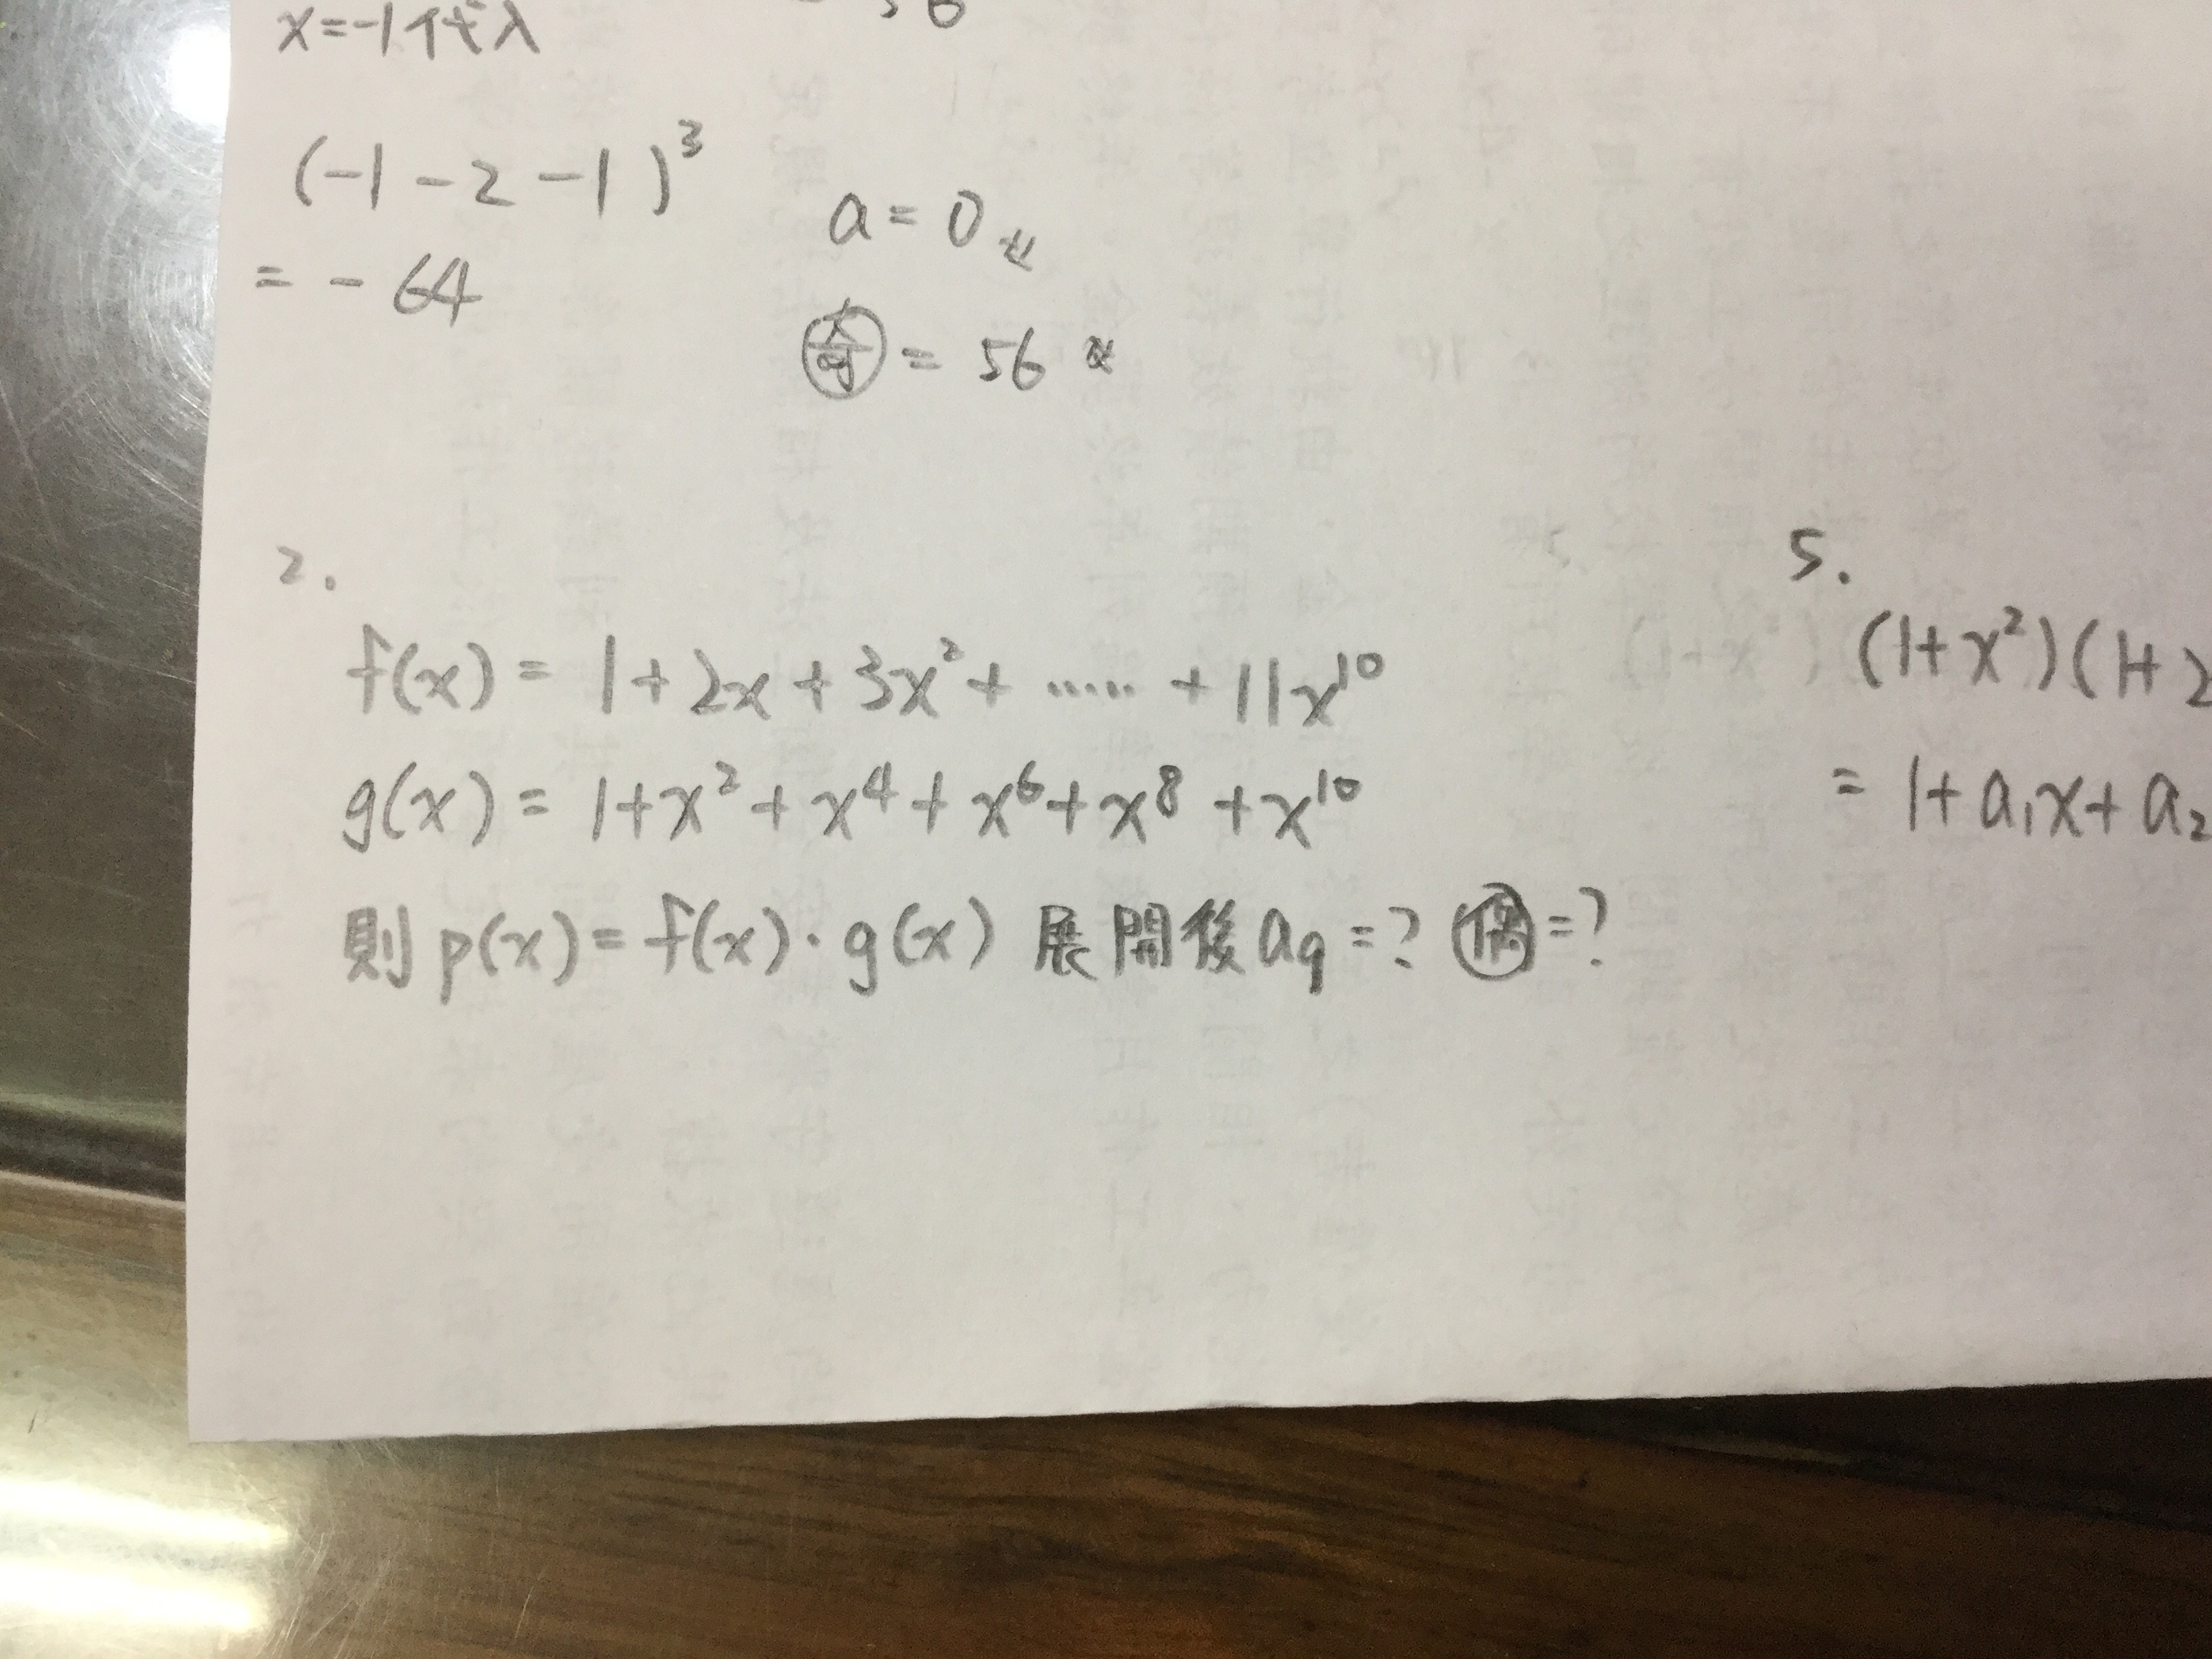 x=-1代入
(-1-2-1)³
= -64
a=0
奇 = 56
2.
f(x) = 1+2x+3x²+ ..... +11x¹⁰
g(x) = 1+x²+x⁴+x⁶+x⁸+x¹⁰
則 p(x)=f(x)·g(x) 展開後 a₉=? 偶=?
5.
(1+x²)(1+2
= 1+a₁x+a₂